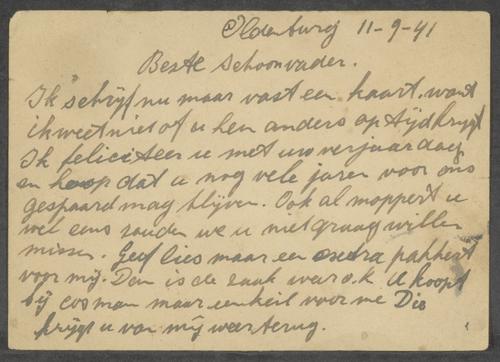 Oldenburg 11-9-41
Beste schoonvader.
Ik schrijf nu maar vast een kaart, want
ik weet niet of u hen anders op tijd krijgt
Ik feliciteer u met uw verjaardag
en hoop dat u nog vele jaren voor ons
gespaard mag blijven. Ook al moppert u
wel eens zouden we u niet graag willen
missen. Geef lies maar een extra pakkert
voor mij. Dan is de zaak weer o.k. U koopt
bij cosman maar een keil voor me Die
krijgt u van mij weer terug.